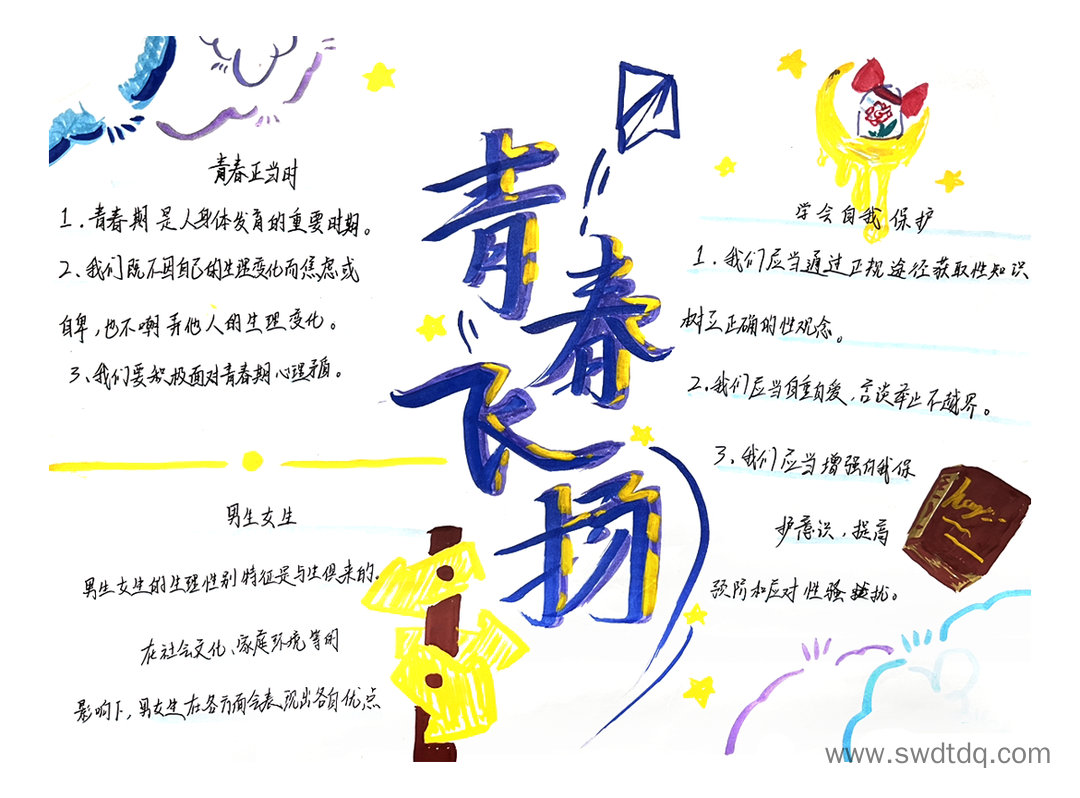 青春飞扬
青春正当时
1.青春期是人身体发育的重要时期。
2、我们既不因自己的生理变化而焦虑或
自卑,也不嘲弄他人的生理变化。
3、我们要积极面对青春期心理矛盾。
男生女生
男生女生的生理性别特征是与生俱来的.
在社会文化、家庭环境等的
影响下,男女生在各方面会表现出各自优点
学会自我保护
1.我们应当通过正规途径获取性知识
树立正确的性观念。
2.我们应当自重自爱,言谈举止不越界。
3、我们应当增强自我保
护意识,提高
预防和应对性骚扰。
www.swdtdq.com